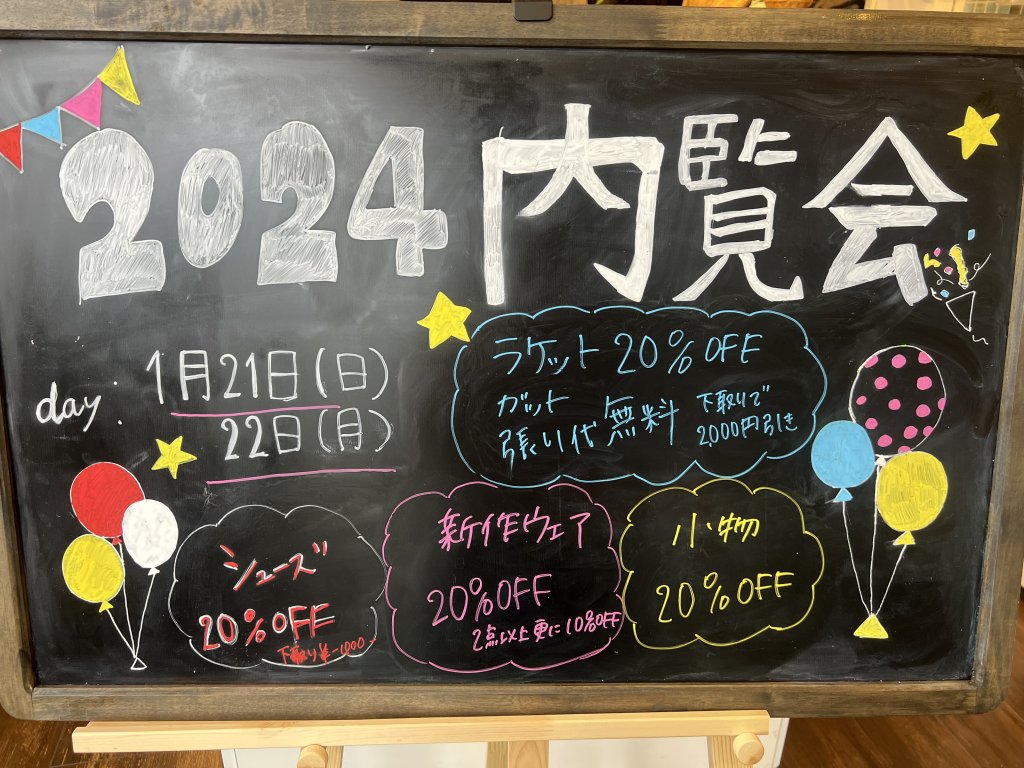 2024 内覧会
day. 1月21日(日)
22日(月)
ラケット 20% OFF
ガット
張り代 無料
下取りで
2000円引き
シューズ
20%OFF
下取り¥-1000-
新作ウェア
20%OFF
2点以上更に10%OFF
小物
20%OFF